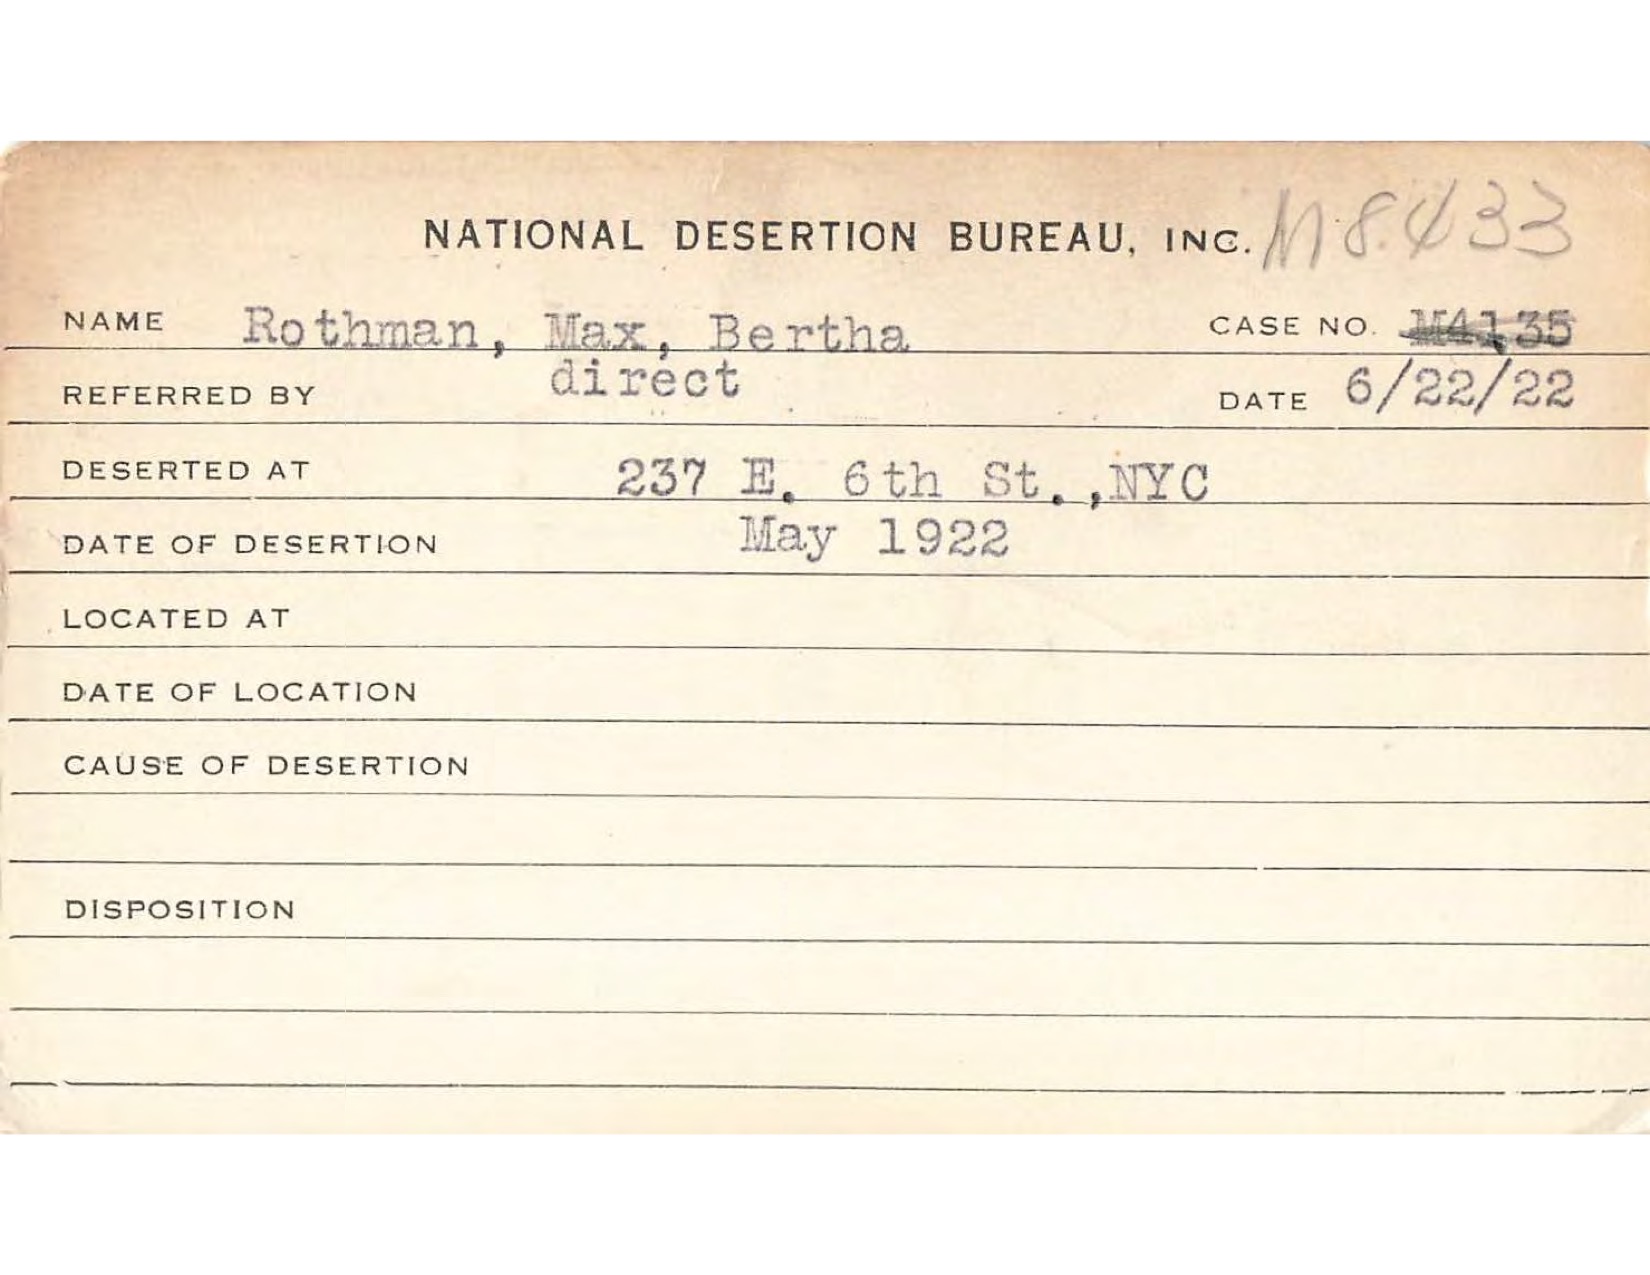 NATIONAL DESERTION BUREAU, INC. M8433
NAME Rothman, Max, Bertha CASE NO. M4135
REFERRED BY direct DATE 6/22/22
DESERTED AT 237 E. 6th St.,NYC
DATE OF DESERTION May 1922
LOCATED AT
DATE OF LOCATION
CAUSE OF DESERTION
DISPOSITION